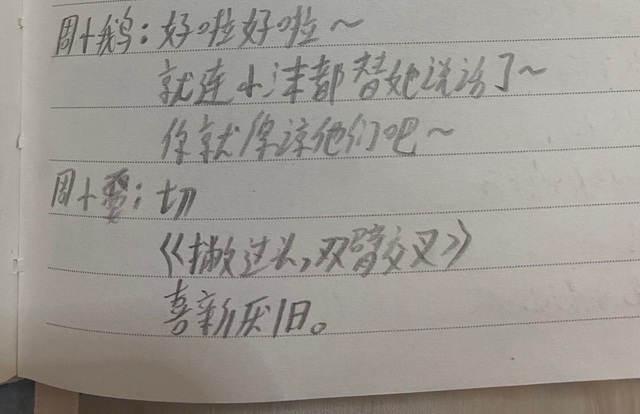 周十鹅：好啦好啦～
就连小沫都替她说话了～
你就原谅他们吧～
周十：切
《撇过头，双臂交叉》
喜新厌旧。